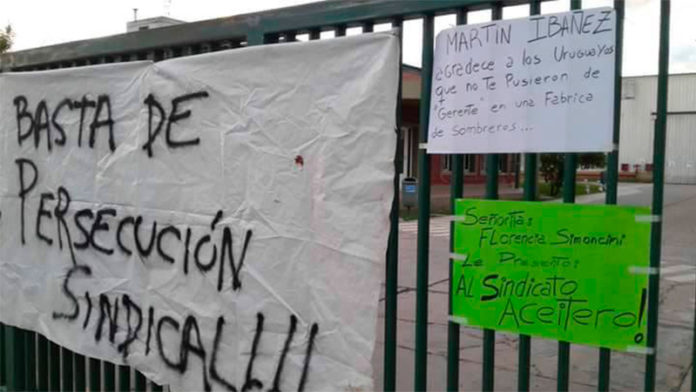 BASTA DE
PERSECUCIÓN
SINDICAL!!!
MARTIN IBAÑEZ
agradece a los Uruguayos
que no Te Pusieron de
"Gerente" en una Fabrica
de Sombreros...
Señoritas
Florencia Simoncini
Le Presento:
AL Sindicato
Aceitero!